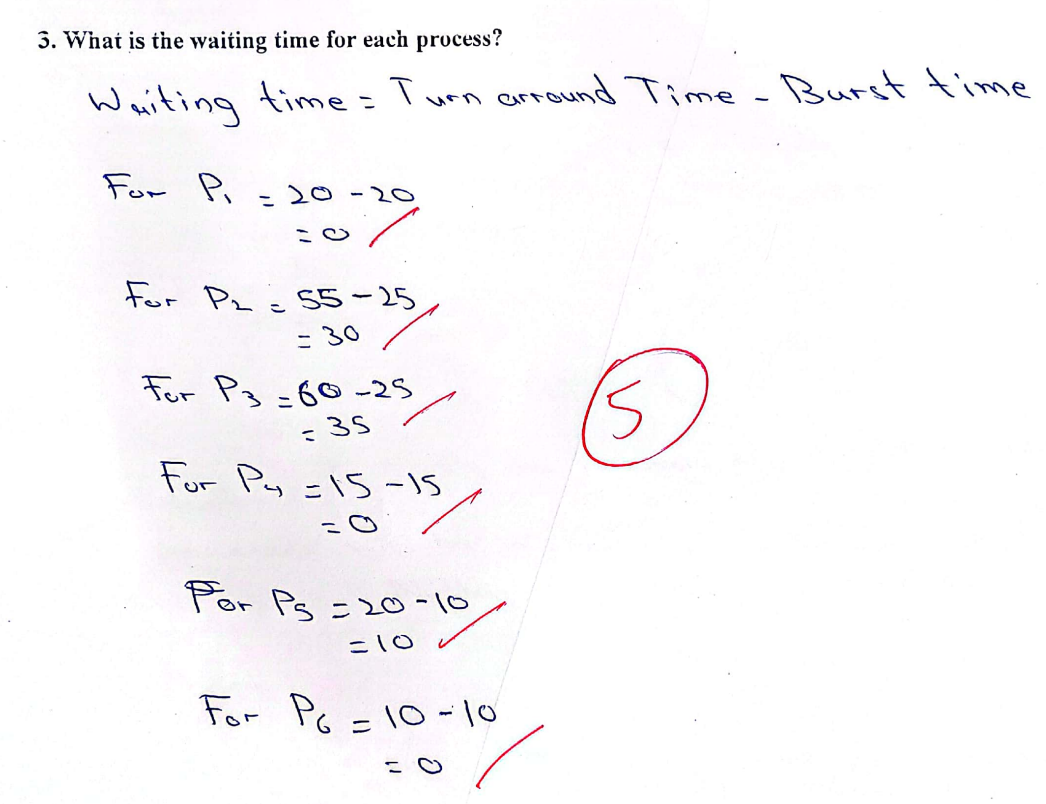 3. What is the waiting time for each process?
Waiting time = Turn arround Time - Burst time
For P₁ = 20 - 20
= 0
For P₂ = 55 - 25
= 30
For P₃ = 60 - 25
= 35
For P₄ = 15 - 15
= 0
5
For P₅ = 20 - 10
= 10
For P₆ = 10 - 10
= 0